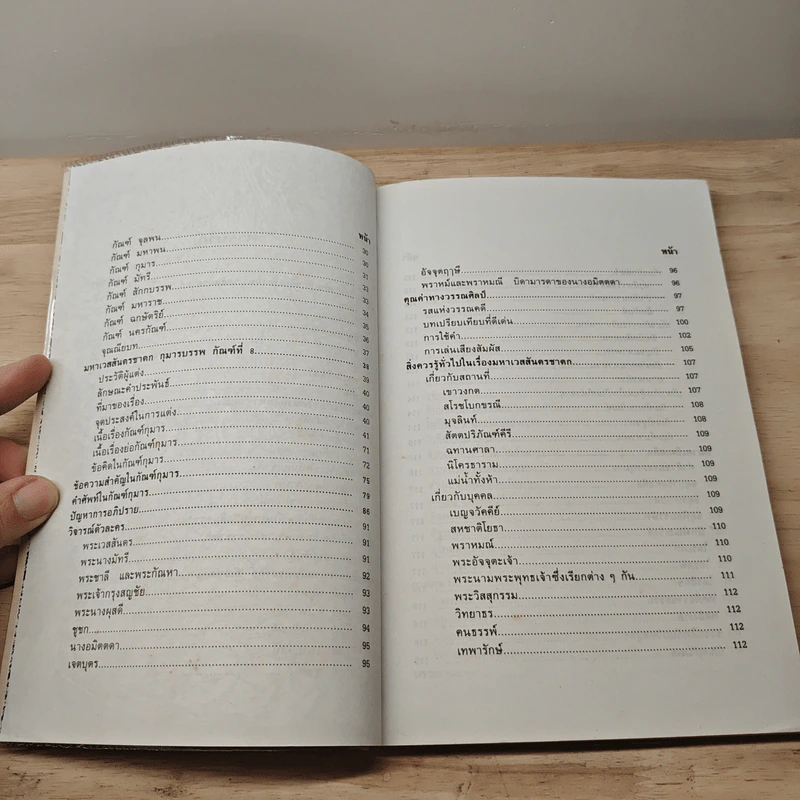 หน้า
กัณฑ์ จุลพน 30
กัณฑ์ มหาพน 30
กัณฑ์ กุมาร 31
กัณฑ์ มัทรี 31
กัณฑ์ สักกบรรพ 33
กัณฑ์ มหาราช 34
กัณฑ์ ฉกษัตริย์ 35
กัณฑ์ นครกัณฑ์ 36
จุณณียบท 37
มหาเวสสันดรชาดก กุมารบรรพ กัณฑ์ที่ 8 38
ประวัติผู้แต่ง 39
ลักษณะคำประพันธ์ 40
ที่มาของเรื่อง 40
จุดประสงค์ในการแต่ง 40
เนื้อเรื่องกัณฑ์กุมาร 41
เนื้อเรื่องย่อกัณฑ์กุมาร 71
ข้อคิดในกัณฑ์กุมาร 72
ข้อความสำคัญในกัณฑ์กุมาร 75
คำศัพท์ในกัณฑ์กุมาร 79
ปัญหาการอภิปราย 86
วิจารณ์ตัวละคร 91
พระเวสสันดร 91
พระนางมัทรี 91
พระชาลี และพระกัณหา 92
พระเจ้ากรุงสญชัย 93
พระนางผุสดี 93
ชูชก 94
นางอมิตตดา 95
เจตบุตร 95
หน้า
อัจจุตฤๅษี 96
พราหม์และพราหมณี บิดามารดาของนางอมิตตดา 96
คุณค่าทางวรรณศิลป์ 97
รสแห่งวรรณคดี 97
บทเปรียบเทียบที่ดีเด่น 100
การใช้คำ 102
การเล่นเสียงสัมผัส 105
สิ่งควรรู้ทั่วไปในเรื่องมหาเวสสันดรชาดก 107
เกี่ยวกับสถานที่ 107
เขาวงกต 107
สโรชโบกขรณี 108
มุจลินท์ 108
สัตตปริภัณฑ์คีรี 109
ฉทานศาลา 109
นิโครธาราม 109
แม่น้ำทั้งห้า 109
เกี่ยวกับบุคคล 109
เบญจวัคคีย์ 109
สหชาติโยธา 110
พราหมณ์ 110
พระอัจจุตะเจ้า 110
พระนามพระพุทธเจ้าซึ่งเรียกต่าง ๆ กัน 111
พระวิสสุกรรม 112
วิทยาธร 112
คนธรรพ์ 112
เทพารักษ์ 112